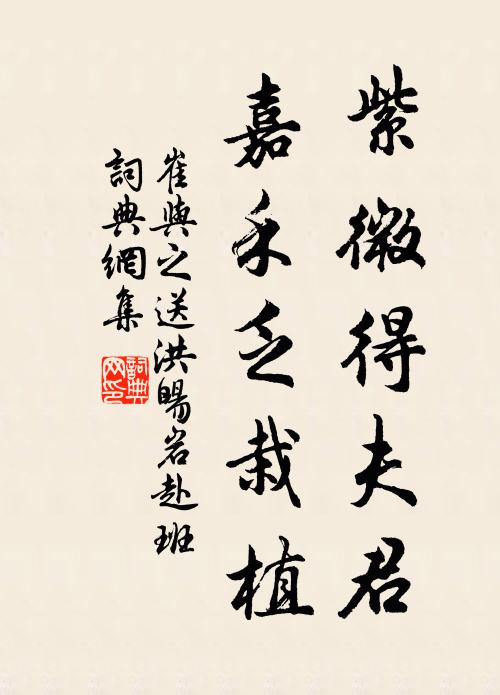 紫微得夫君
嘉禾乏栽植
崔與之送洪暘岩赴班
詞典網集
詞典网印